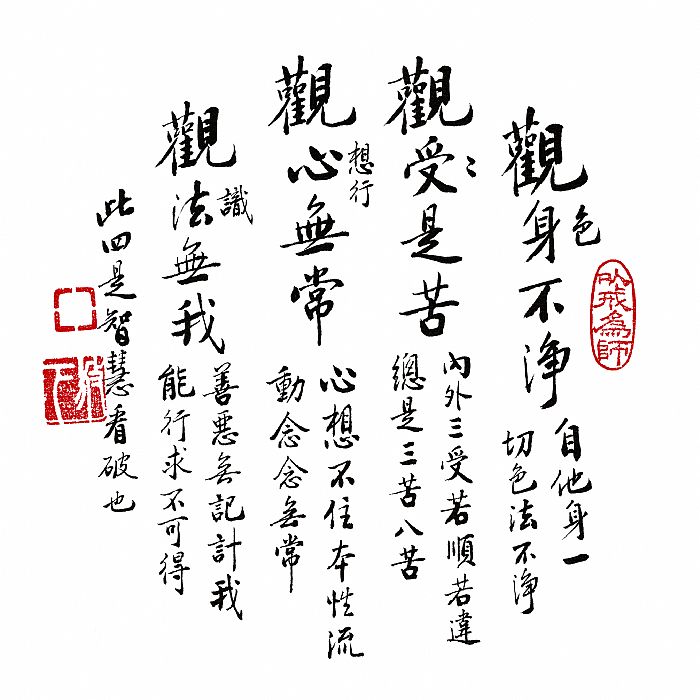 以戒為師
觀身不淨
色
自他身一
切色法不淨
觀受是苦
〻
內外三受若順若違
總是三苦八苦
觀心無常
想行
心想不住本性流
動念念無常
觀法無我
識
善惡無記計我
能行求不可得
此四是智慧看破也